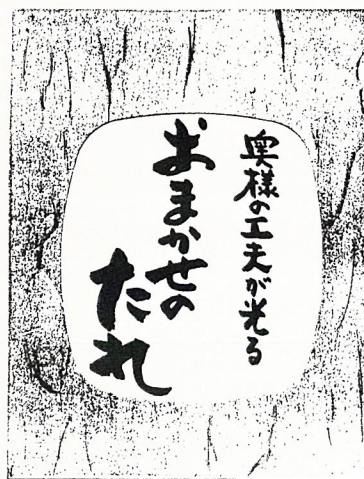 奥様の工夫が光る
おまかせの
たれ